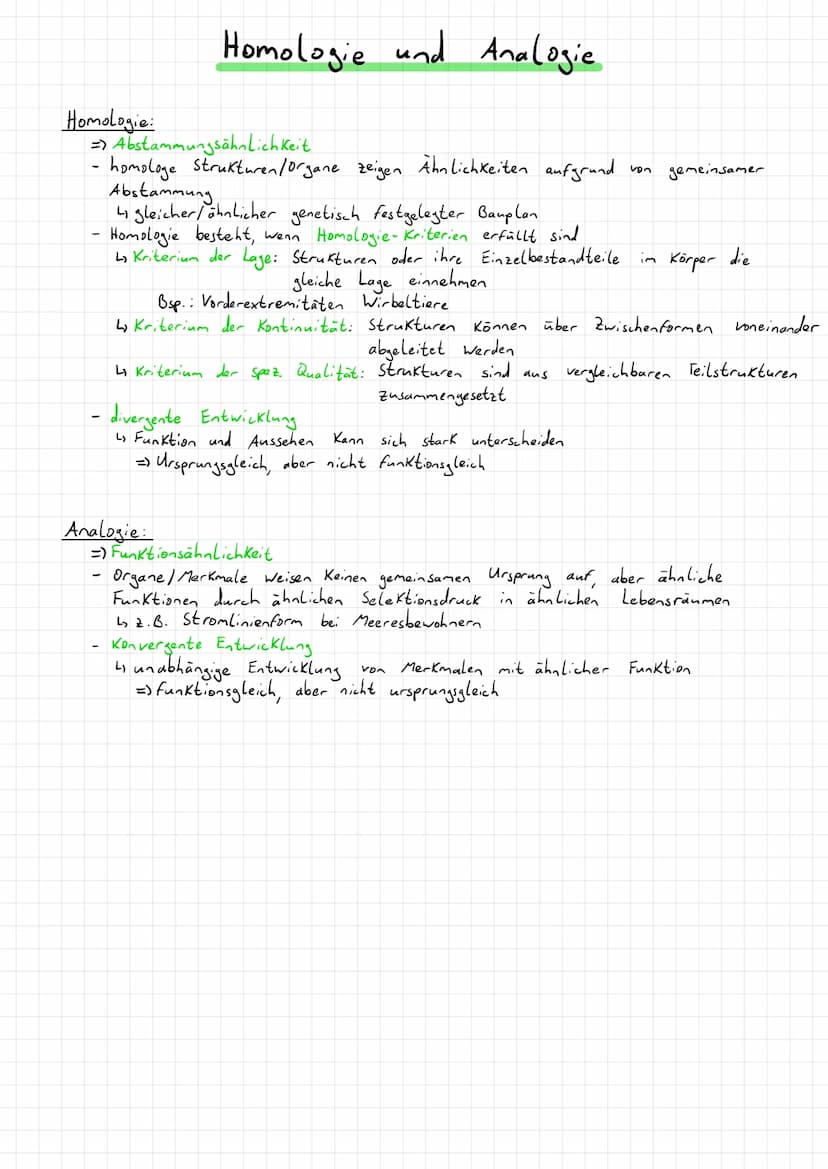 Homologie und Analogie
Homologie:
=> Abstammungsähnlichkeit
- homologe Strukturen/Organe zeigen Ähnlichkeiten aufgrund von gemeinsamer
Abstammung
↳ gleicher/ähnlicher genetisch festgelegter Bauplan
- Homologie besteht, wenn Homologie-Kriterien erfüllt sind
↳ Kriterium der Lage: Strukturen oder ihre Einzelbestandteile im Körper die
gleiche Lage einnehmen
Bsp.: Vorderextremitäten Wirbeltiere
↳ Kriterium der Kontinuität: Strukturen können über Zwischenformen voneinander
abgeleitet werden
↳ Kriterium der spez. Qualität: Strukturen sind aus vergleichbaren Teilstrukturen
zusammengesetzt
- divergente Entwicklung
↳ Funktion und Aussehen kann sich stark unterscheiden
=> Ursprungsgleich, aber nicht funktionsgleich
Analogie:
=> Funktionsähnlichkeit
- Organe/Merkmale weisen keinen gemeinsamen Ursprung auf, aber ähnliche
Funktionen durch ähnlichen Selektionsdruck in ähnlichen Lebensräumen
↳ z.B. Stromlinienform bei Meeresbewohnern
- Konvergente Entwicklung
↳ unabhängige Entwicklung von Merkmalen mit ähnlicher Funktion
=> funktionsgleich, aber nicht ursprungsgleich